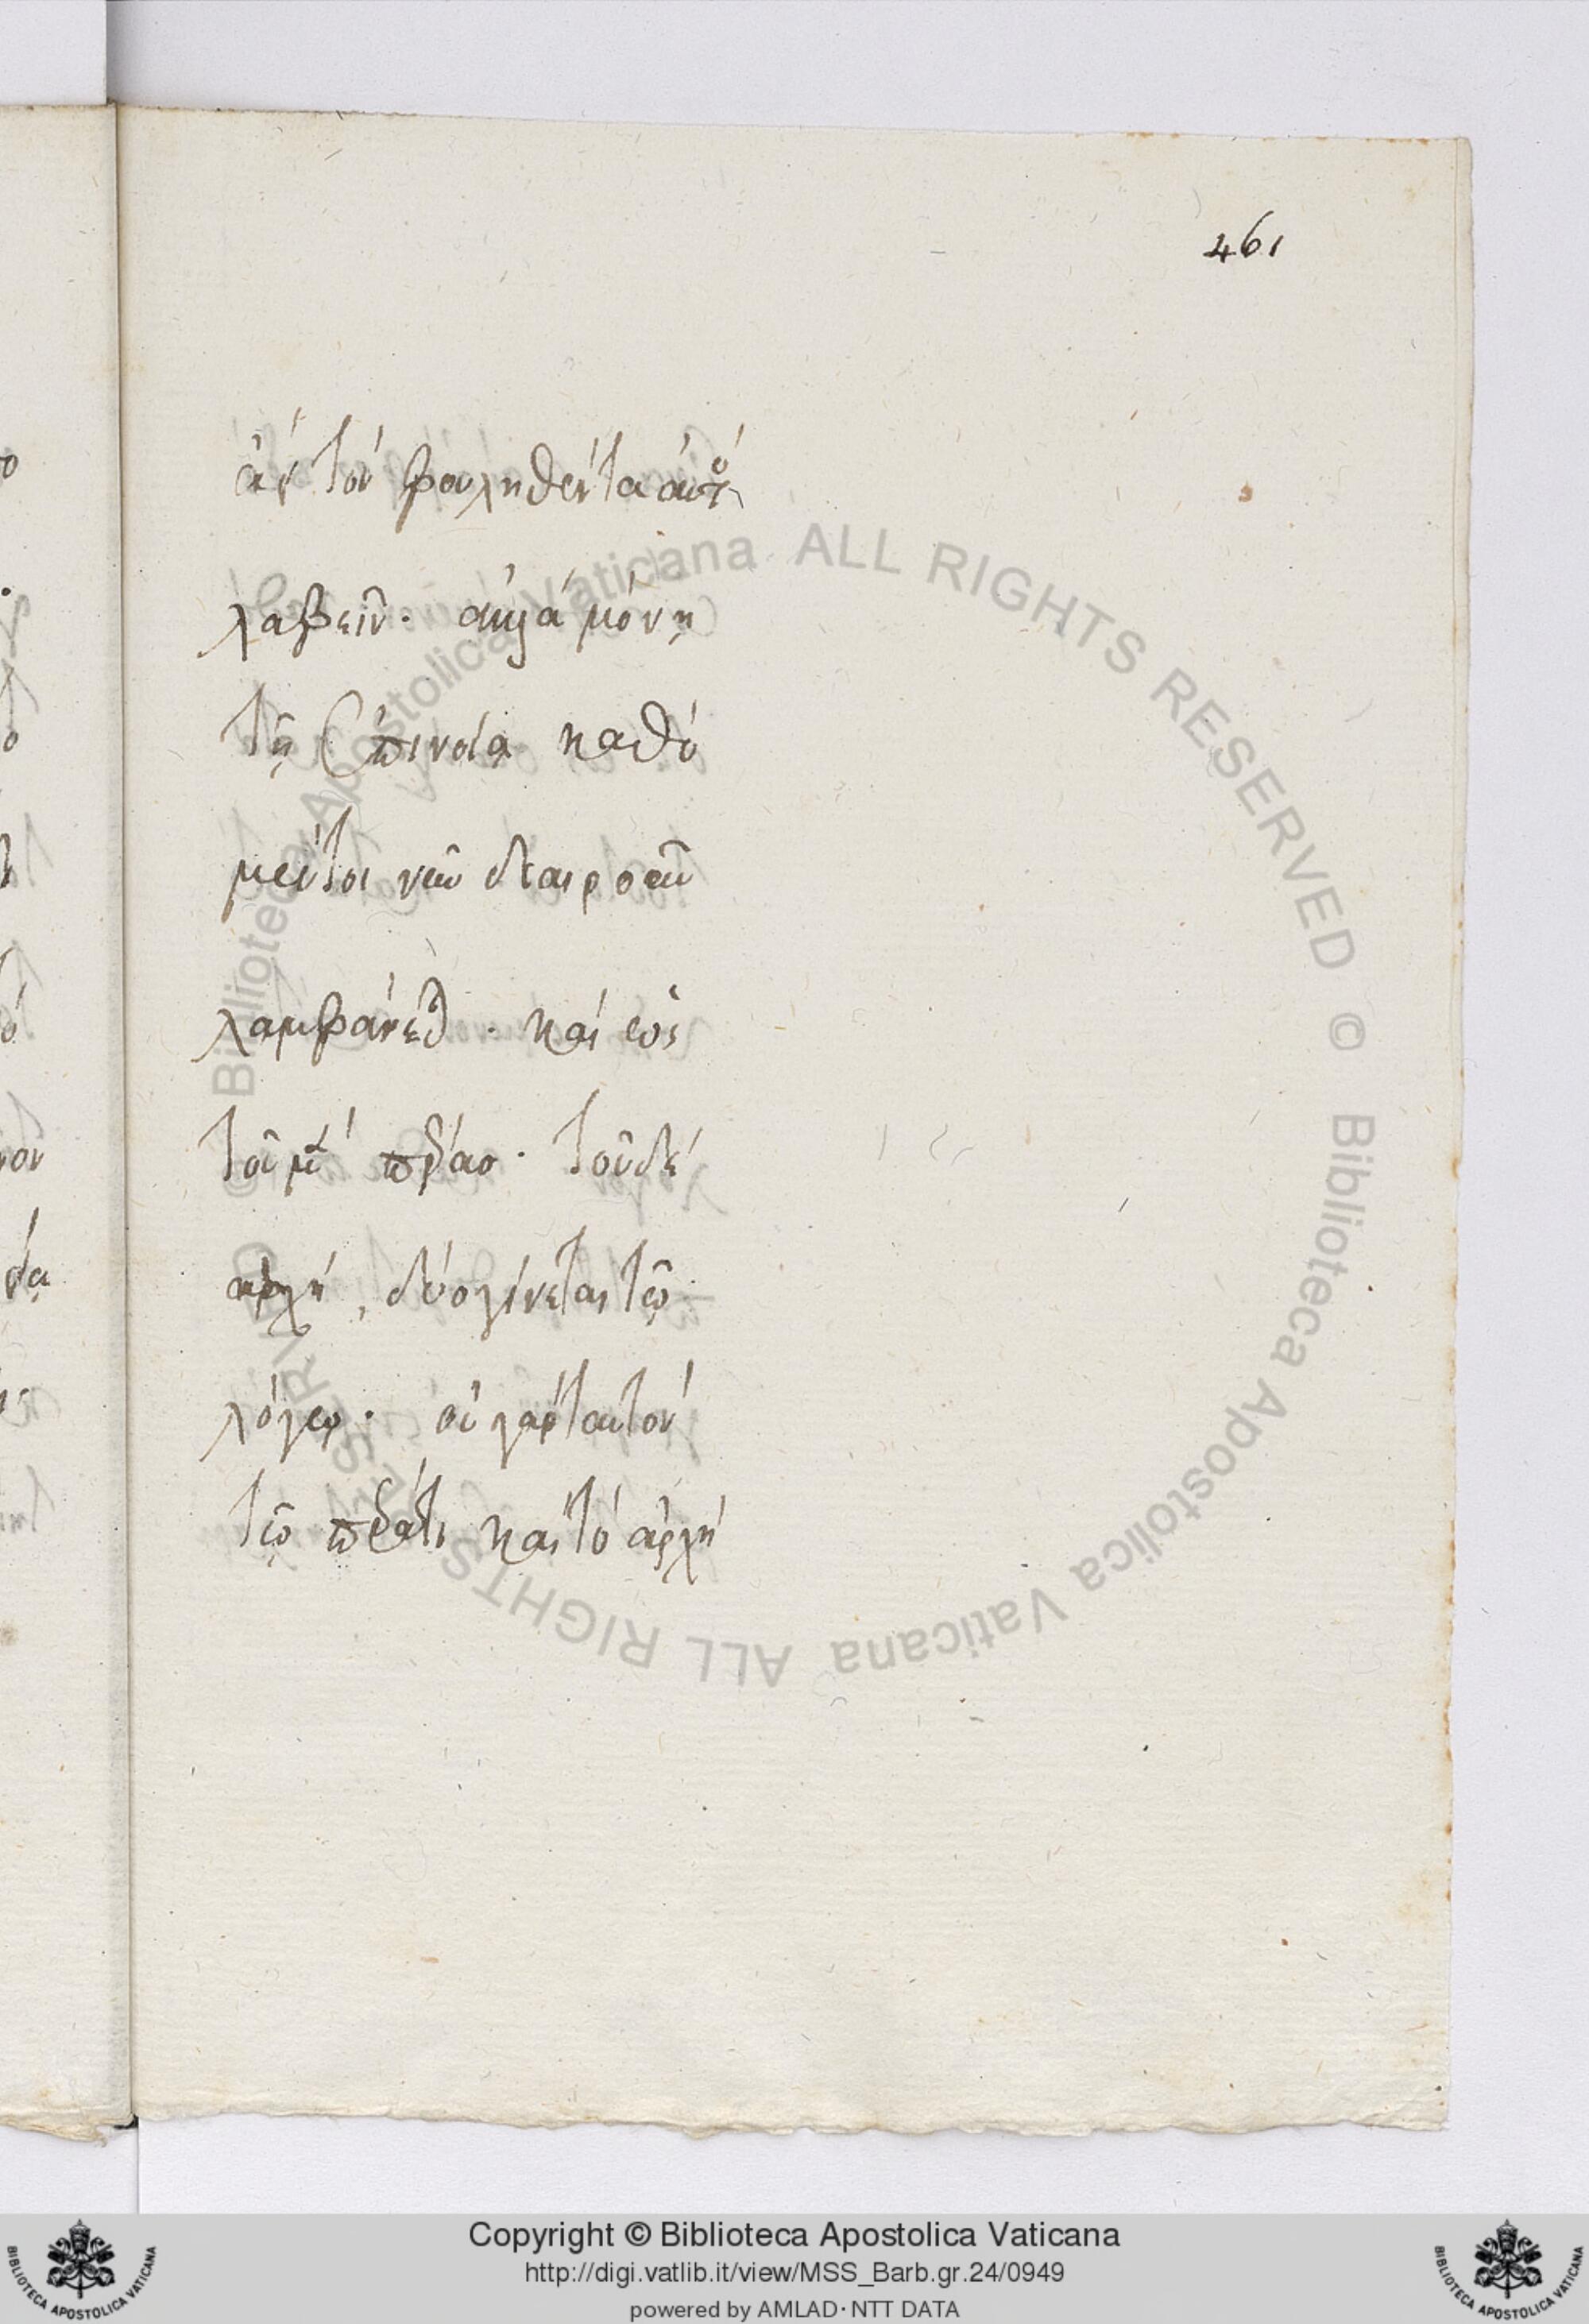 461
ἂν τὸν βουληθέντα αὐτὸ
λαβεῖν. ἀλλὰ μόνῃ
τῇ ἐπινοίᾳ καθὸ
μέντοι νῦν
λαμβάνε. καὶ ὡς
τοῦ μὲν πέρας. τοῦ δὲ
ἀρχή, δύο γίνεται τῷ
λόγῳ. οὐ γὰρ ταυτὸν
τῷ πέρατι καὶ τὸ ἀρχὴ
© Biblioteca Apostolica Vaticana ALL RIGHTS RESERVED © Biblioteca Apostolica Vaticana ALL RIGHTS RESERVED
Copyright © Biblioteca Apostolica Vaticana
http://digi.vatlib.it/view/MSS_Barb.gr.24/0949
powered by AMLAD·NTT DATA
BIBLIOTECA APOSTOLICA VATICANA
BIBLIOTECA APOSTOLICA VATICANA